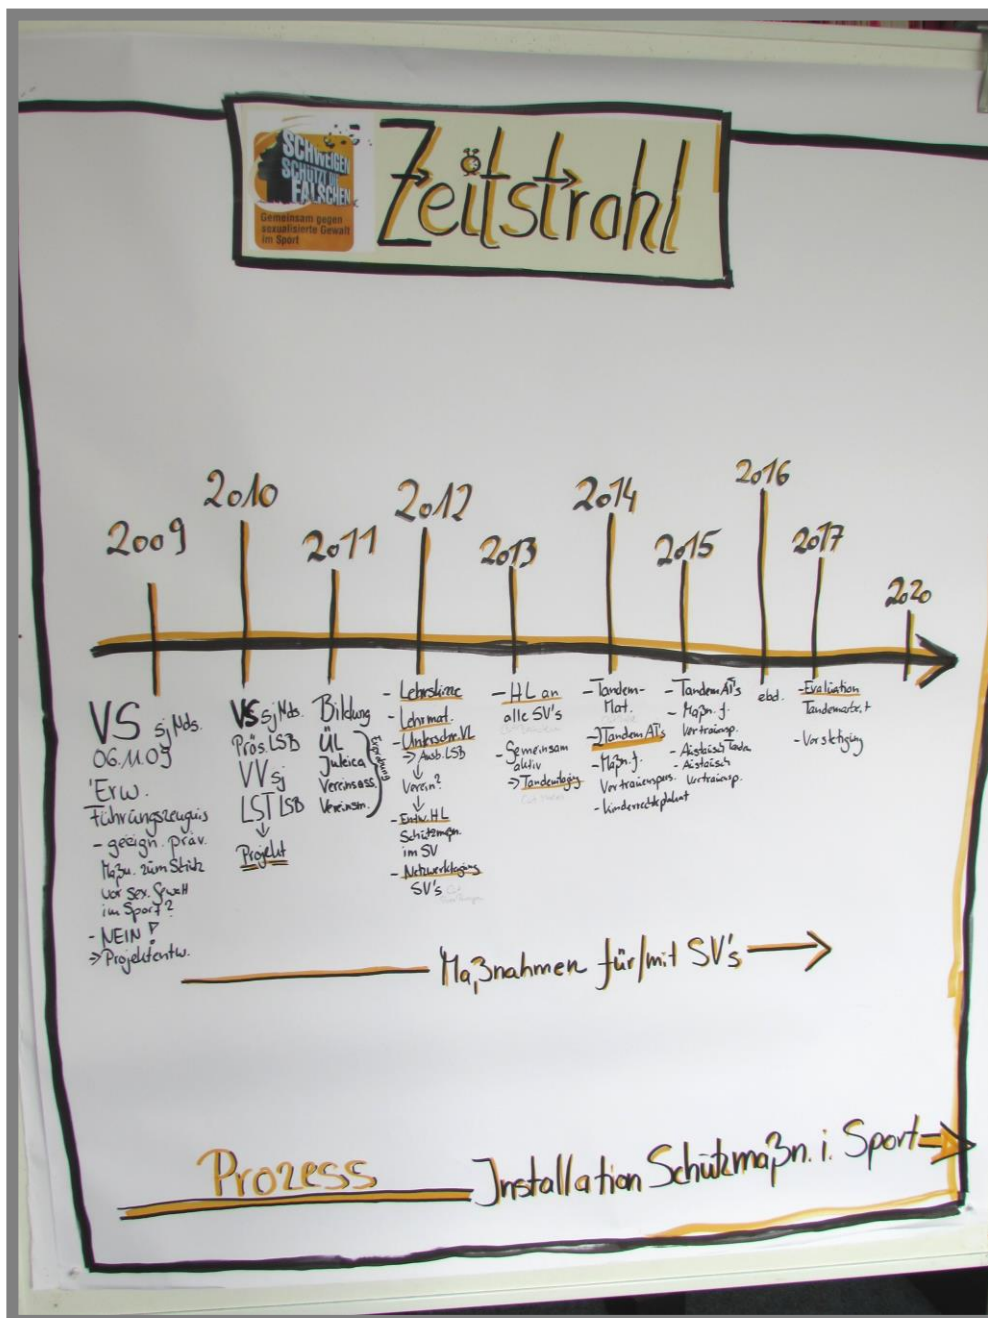 SCHWEIGEN
SCHÜTZT DIE
FALSCHEN
Gemeinsam gegen
sexualisierte Gewalt
im Sport
Zeitstrahl
2009
2010
2011
2012
2013
2014
2015
2016
2017
2020
VS sj Nds.
06.11.09
'Erw.
Führungszeugnis
- geeign. präv.
Maßn. zum Schutz
vor sex. Gewalt
im Sport?
- NEIN!
=> Projektentw.
VS sj Nds.
Präs. LSB
VV sj
LST LSB
↓
Projekt
Bildung
ÜL
Juleica
Vereinsass.
Vereinsm.
- Lehrskizze
- Lehrmat.
- Unterschr. VL
=> Ausb. LSB
↓
Verein?
↓
- Entw. HL
Schutzmaßn.
im SV
- Netzwerktagung
SV's
- HL an
alle SV's
- Gemeinsam
aktiv
=> Tandemtagung
- Tandem-
Mat.
- 2 Tandem AT's
- Maßn. f.
Vertrauenspers.
- Kinderrechteplakat
- Tandem AT's
- Maßn. f.
Vertrauensp.
- Austausch Tandem
- Austausch
Vertrauensp.
ebd.
- Evaluation
Tandemarb.
- Verstetigung
Maßnahmen für/mit SV's
Prozess
Installation Schutzmaßn. i. Sport